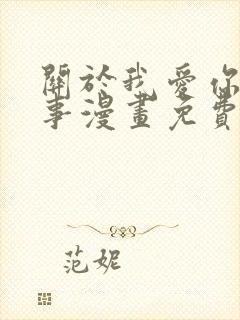 關於我愛你
事漫畫免費
范妮